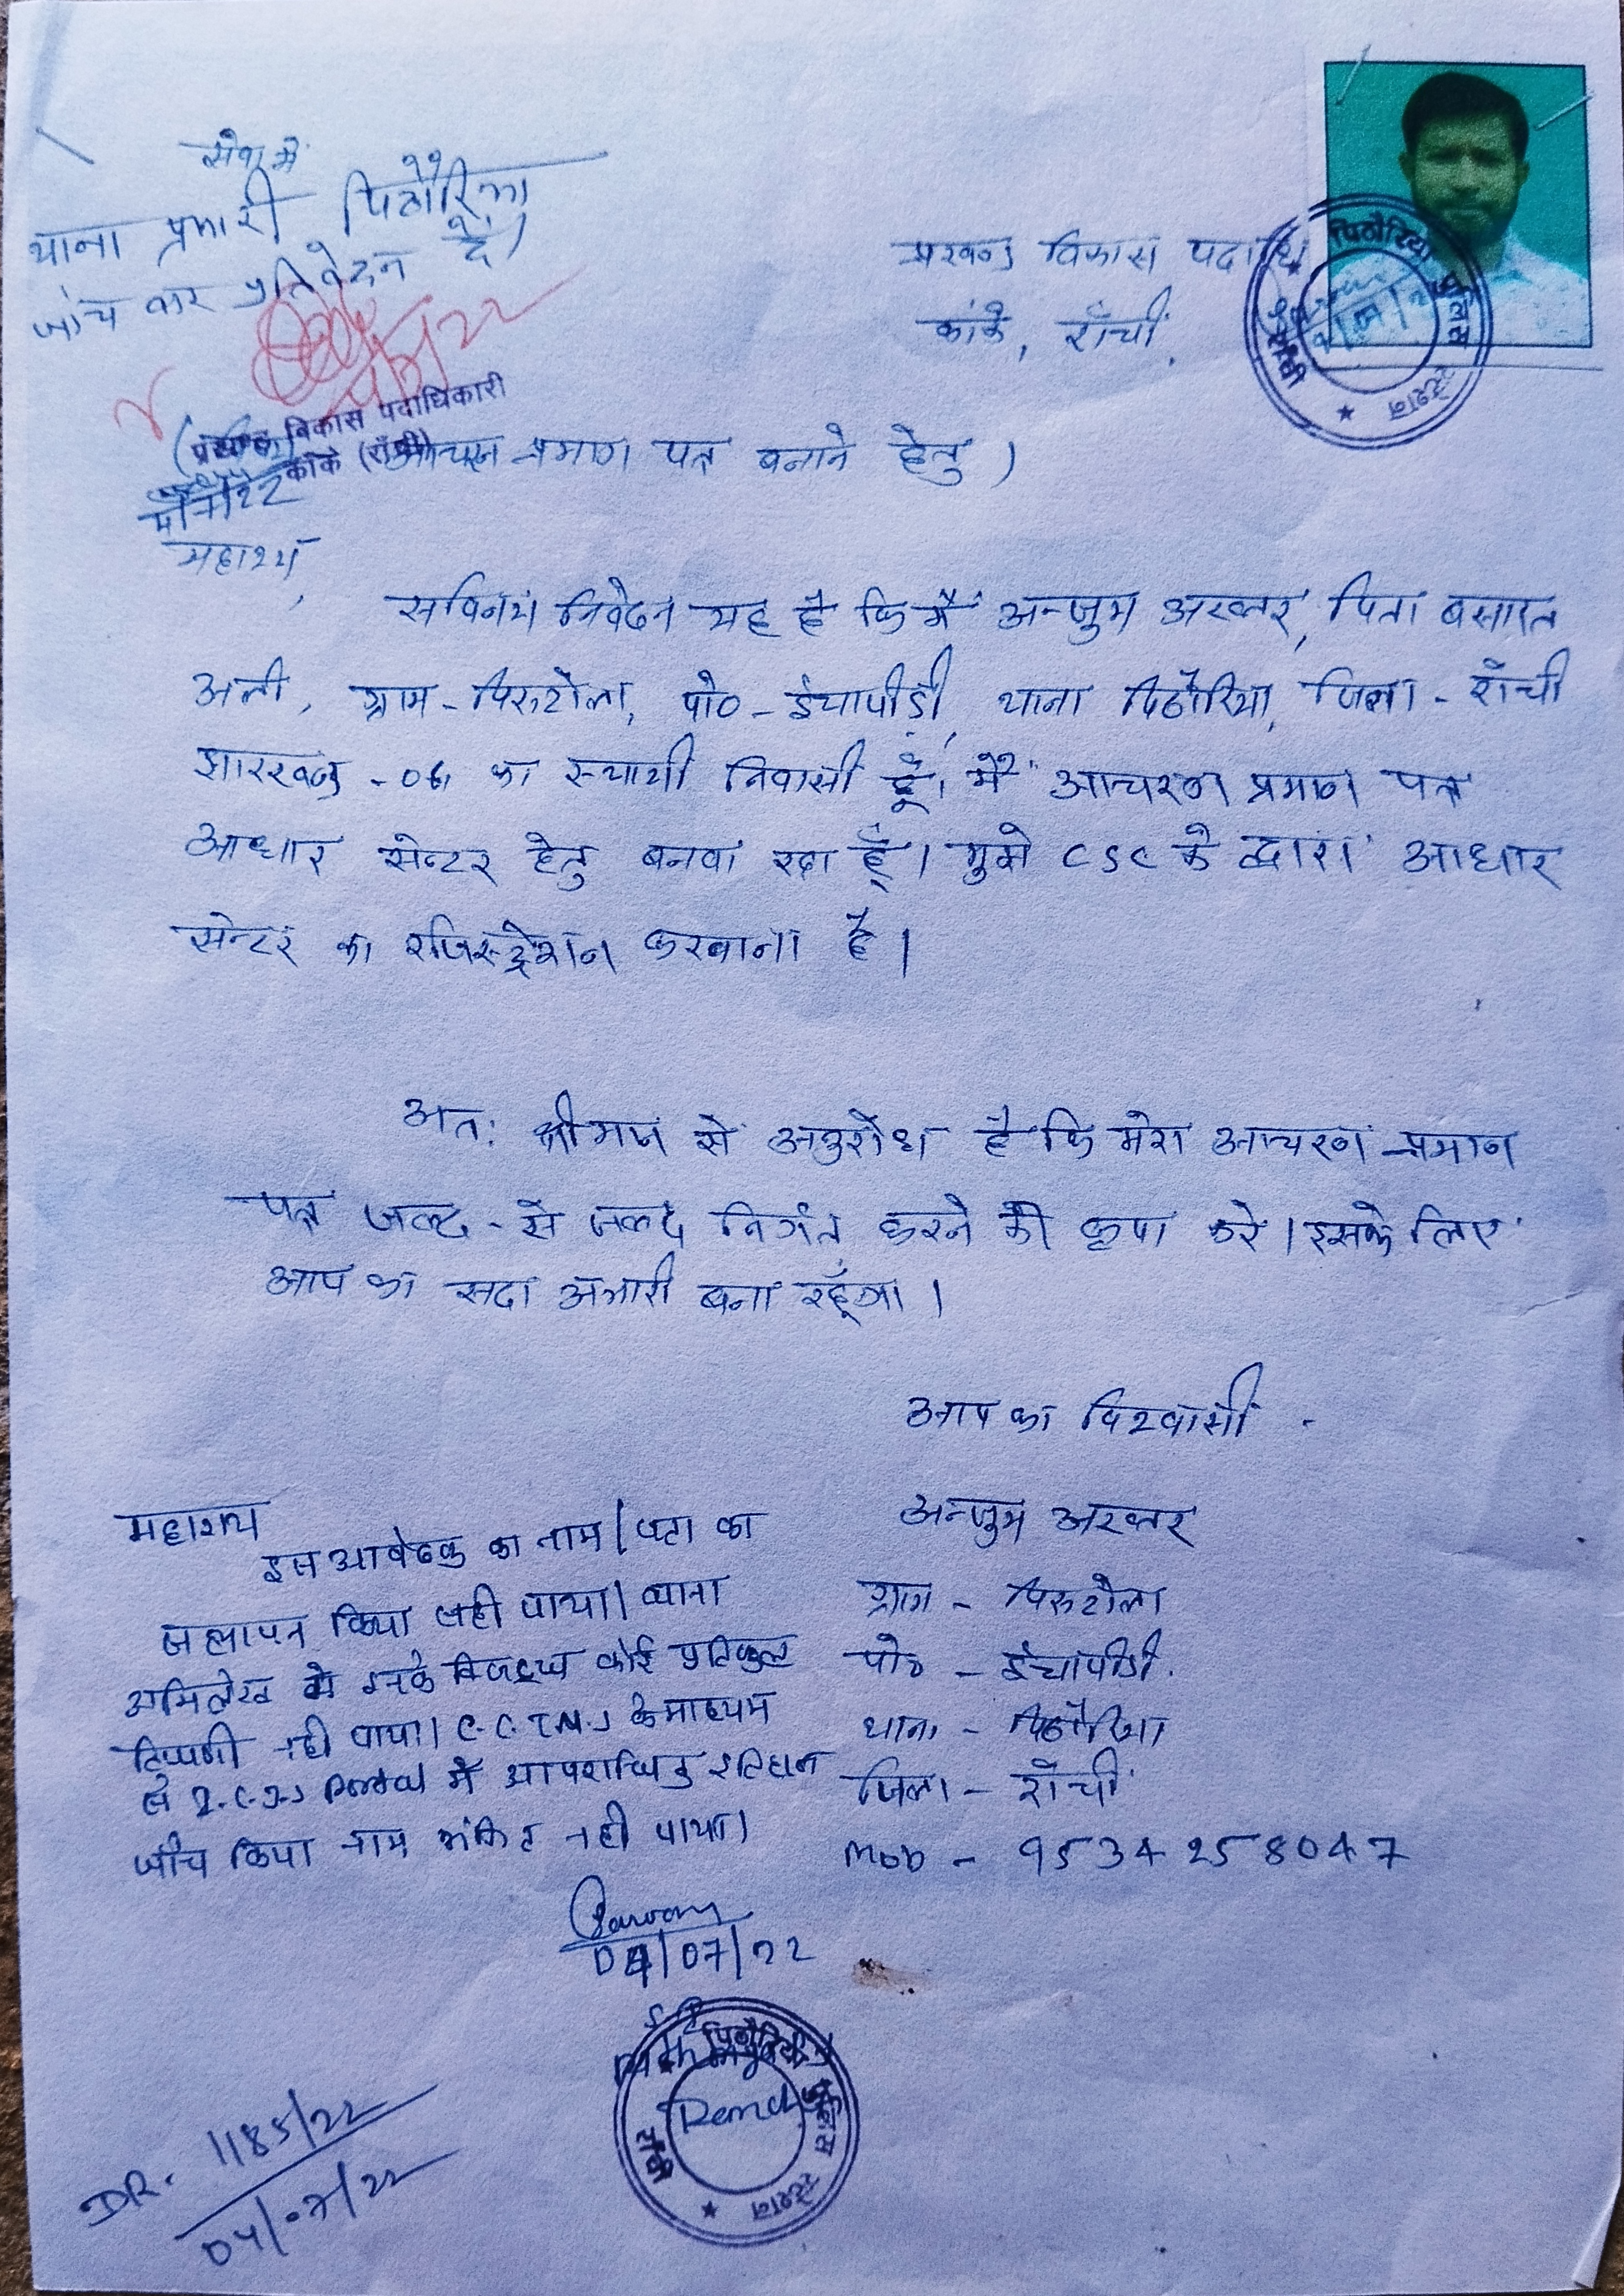 सेवा में
थाना प्रभारी पिठौरिया
जांच कर प्रतिवेदन दें।
प्रखण्ड विकास पदाधि
कांके, राँची,
प्रखण्ड विकास पदाधिकारी
कांके (राँची)
आचरण प्रमाण पत्र बनाने हेतु)
महाशय,
सविनय निवेदन यह है कि मैं अन्जुम अख्तर, पिता बसारत
अली, ग्राम-पिरुटोला, पो०-ईचापीड़ी, थाना पिठोरिया, जिला-राँची
झारखण्ड -06 का स्थायी निवासी हूँ। मैं आचरण प्रमाण पत्र
आधार सेन्टर हेतु बनवा रहा हूँ। मुझे CSC के द्वारा आधार
सेन्टर का रजिस्ट्रेशन करवाना है।
अतः श्रीमान से अनुरोध है कि मेरा आचरण प्रमाण
पत्र जल्द-से जल्द निर्गत करने की कृपा करें। इसके लिए
आप का सदा अभारी बना रहूँगा।
आप का विश्वासी
अन्जुम अख्तर
ग्राम - पिरुटोला
पो० - ईचापीड़ी
थाना - पिठोरिया
जिला - राँची
Mob - 9534258047
महाशय
इस आवेदक का नाम/पता का
सत्यापन किया सही पाया। थाना
अभिलेख में इनके विरुद्ध कोई प्रतिकुल
टिप्पणी नहीं पाया। C.C.T.N.S के माध्यम
से I.C.J.S Portal में आपराधिक इतिहास
जाँच किया नाम अंकित नहीं पाया।
04/07/22
पिठौरिया पुलिस स्टेशन
राँची
Ranchi
DR. 1185/22
04/07/22
पिठौरिया पुलिस स्टेशन
राँची